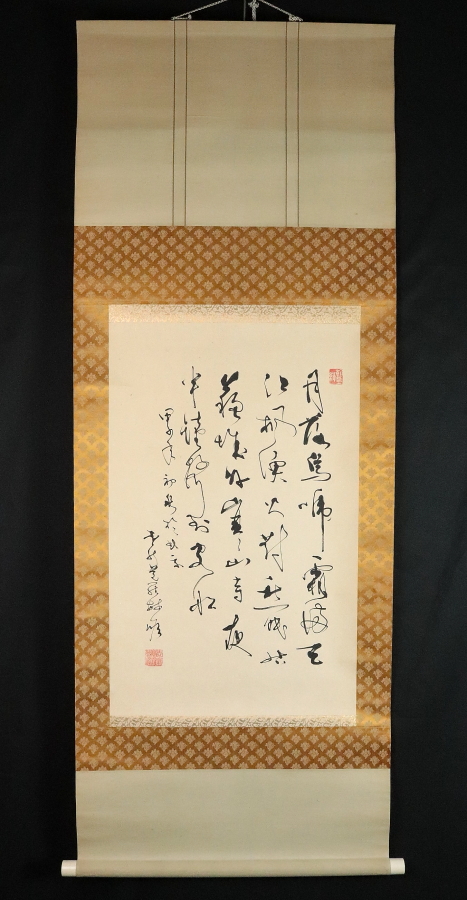 月落烏啼霜満天
江楓漁火対愁眠姑
蘇城外寒山寺夜
半鐘声到客船
甲子年初冬於東京